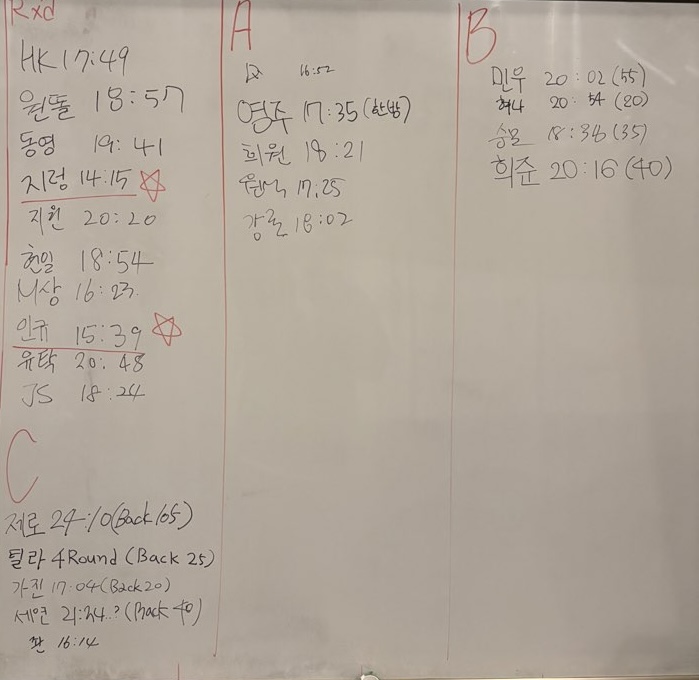 Rxd
HK 17:49
원똘 18:57
동영 19:41
지렁 14:15
지원 20:20
현일 18:54
M상 16:23
인규 15:39
유탁 20:48
JS 18:24
A
16:52
영주 17:35 (한방)
희원 18:21
17:25
강로 18:02
B
민우 20:02 (55)
혀나 20:54 (20)
승모 18:36 (35)
희준 20:16 (40)
C
제로 24:10 (Back 105)
틸라 4Round (Back 25)
가진 17:04 (Back 20)
세연 21:34..? (Back 40)
쫜 16:14